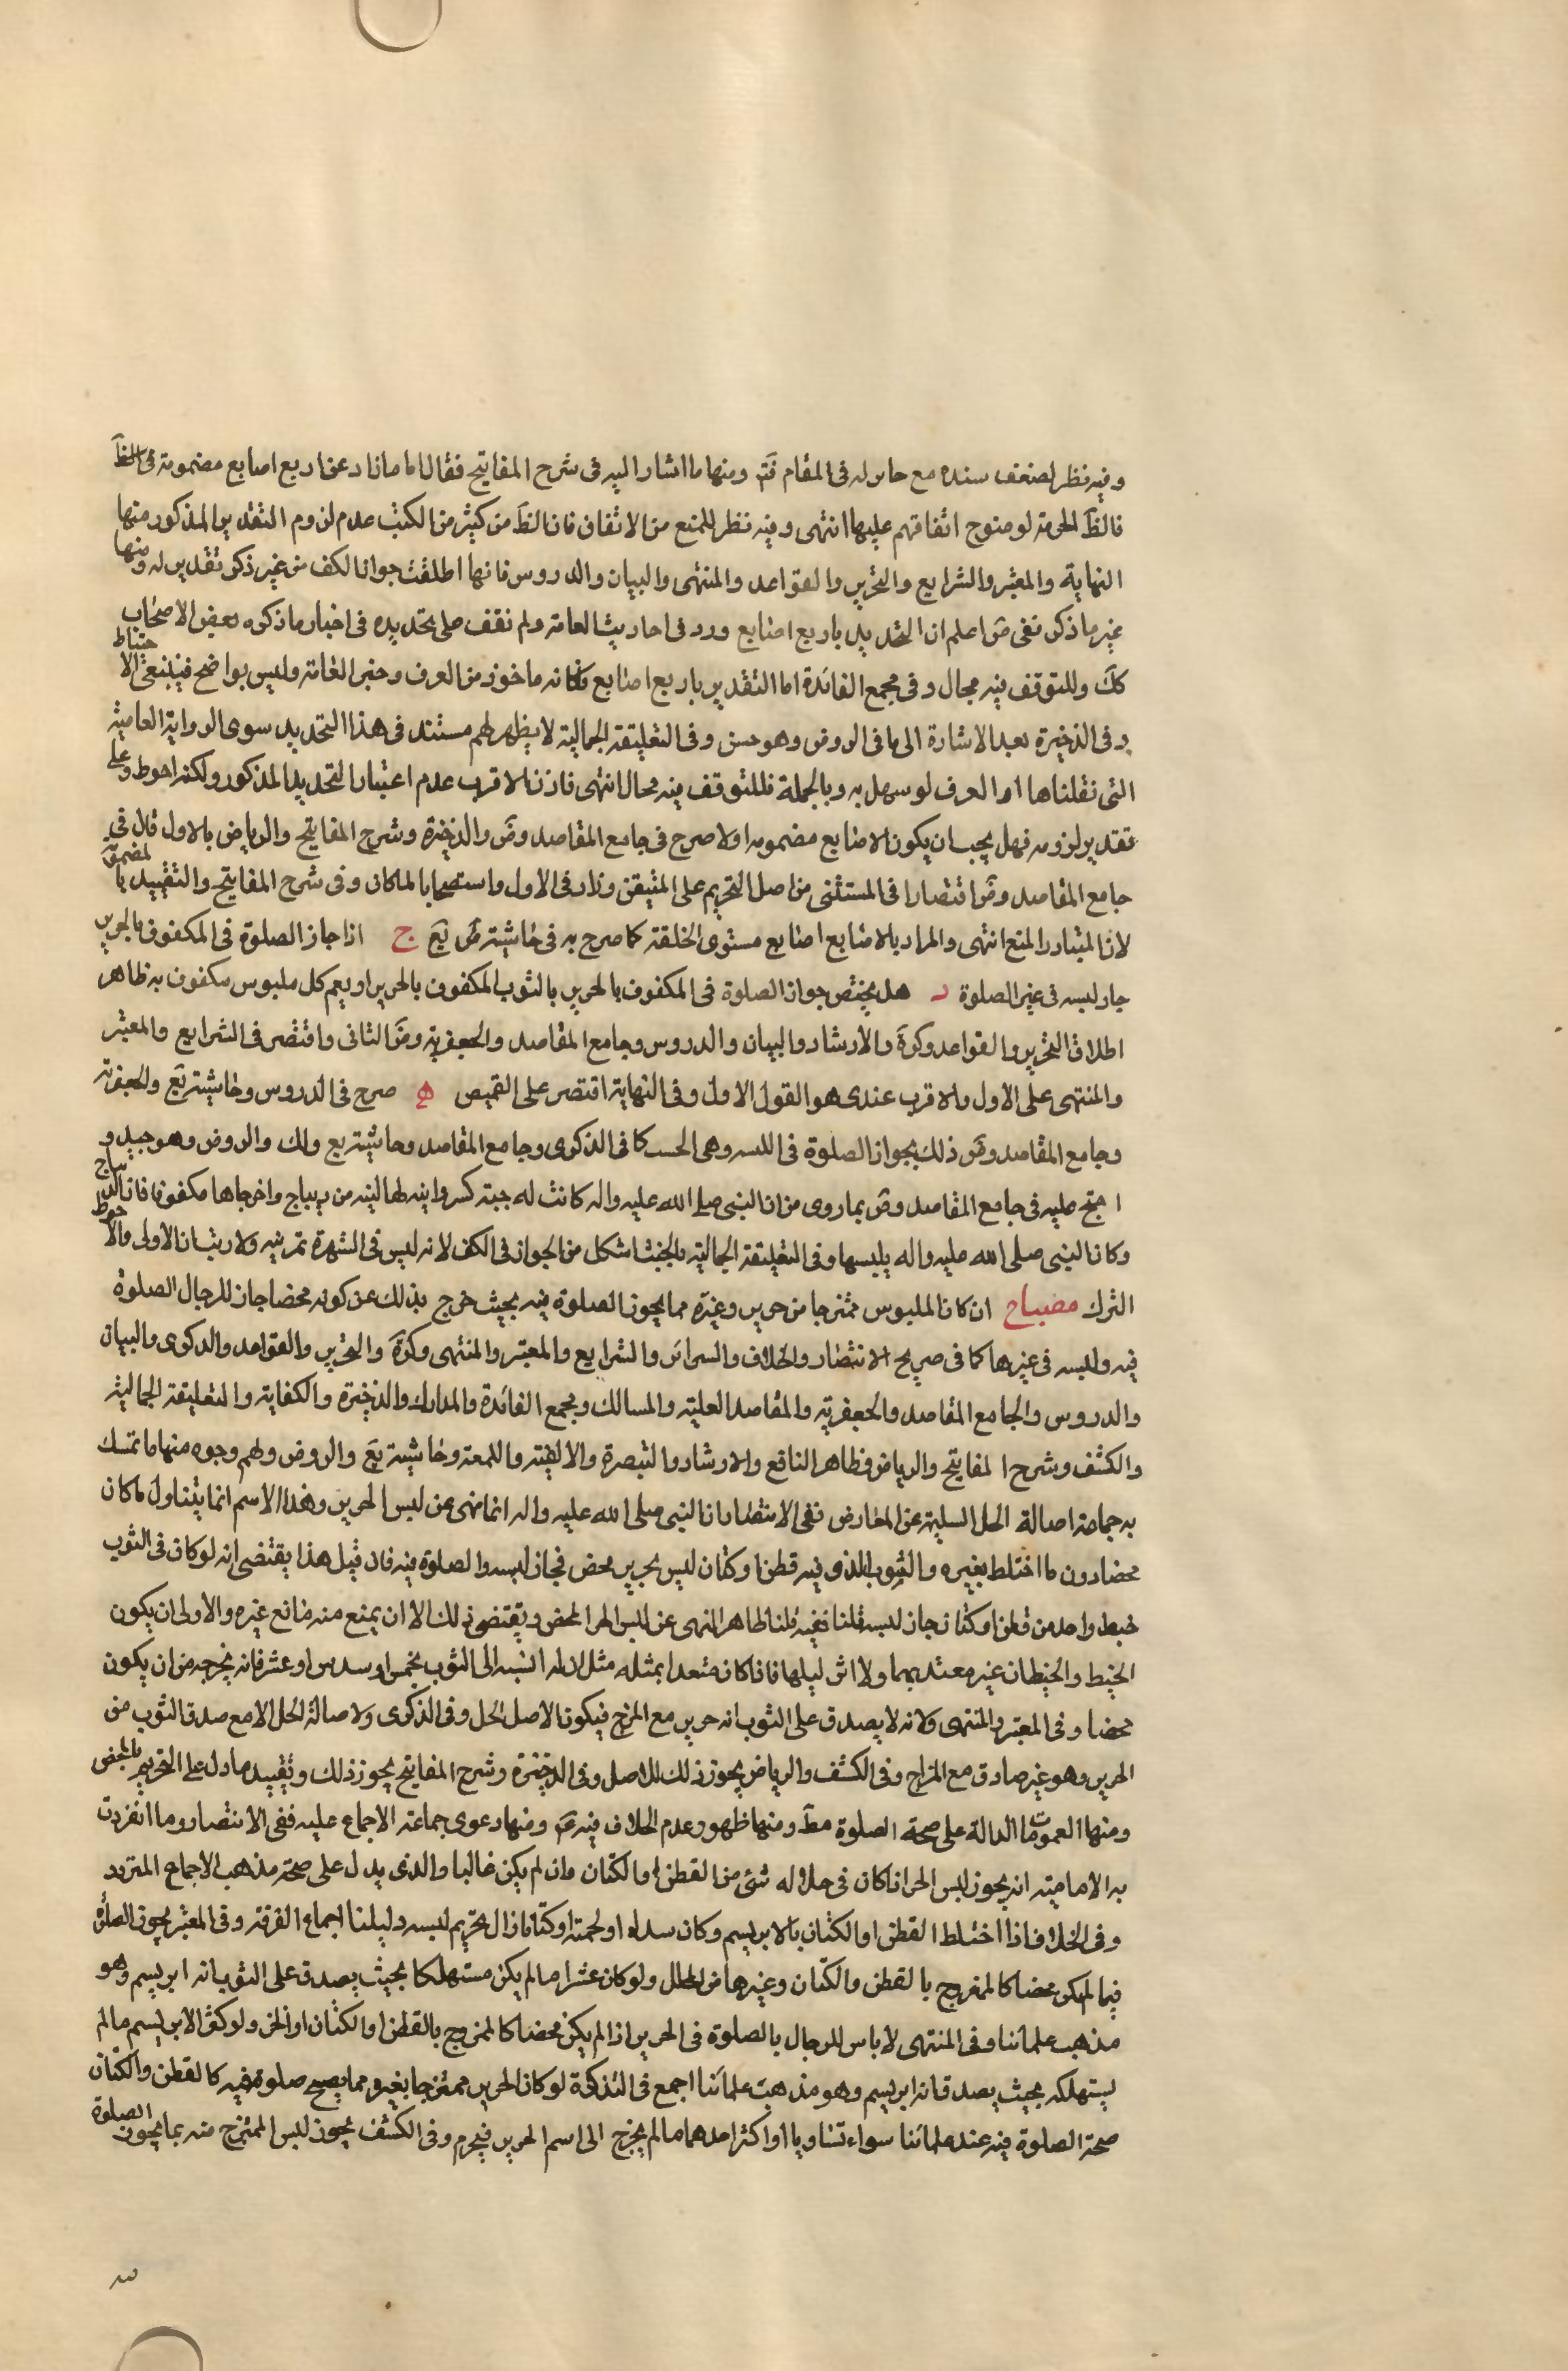 وفيه نظر لضعف سنده مع حابر له فى المقام فتم ومنها ما اشار اليه فى شرح المفاتيح فقال اما ما زاد عن اربع اصابع مضمومة فى الظ
فالظ الحرمة لوضوح اتفاقهم عليها انتهى وفيه نظر للمنع من الاتفاق فان الظ من كثير من الكتب عدم لزوم التقدير المذكور منها
النهاية والمعتبر والشرايع والتحرير والقواعد والمنتهى والبيان والدروس فانها اطلقت جواز الكف من غير ذكر تقدير له ومنها
غير ما ذكر ففى ض اعلم ان التحديد باربع اصابع ورد فى احاديث العامة ولم نقف على تحديده فى اخبار ما ذكره بعض الاصحاب
كك وللتوقف فيه مجال وفى مجمع الفائدة اما التقدير باربع اصابع فكانه ماخوذ من العرف وخبر العامة وليس بواضح فينبغى الاحتياط
وفى الذخيرة بعد الاشارة الى ما فى الروض وهو حسن وفى التعليقة الجمالية لا يظهر لهم مستند فى هذا التحديد سوى الرواية العامية
التى نقلناها او العرف لو سهل به وبالجملة فللتوقف فيه مجال انتهى فاذن الاقرب عدم اعتبار التحديد المذكور ولكنه احوط وعلى
تقدير لزومه فهل يجب ان يكون الاصابع مضمومه اولا صرح فى جامع المقاصد وض والذخيرة وشرح المفاتيح والرياض بالاول قال فى
جامع المقاصد وض اقتصارا فى المستثنى من اصل التحريم على المتيقن وزاد فى الاول واستصحابا لما كان وفى شرح المفاتيح والتقييد بالمضمومة
لان المتبادر المنع انتهى والمراد بالاصابع اصابع مستوى الخلقة كما صرح به فى حاشية ض يع ج اذا جاز الصلوة فى المكفوف بالحرير
جاز لبسه فى غير الصلوة د هل يختص جواز الصلوة فى المكفوف بالحرير بالثوب المكفوف بالحرير او يعم كل ملبوس مكفوف به ظاهر
اطلاق التحرير والقواعد وكرة والارشاد والبيان والدروس وجامع المقاصد والجعفرية وض الثانى واقتصر فى الشرايع والمعتبر
والمنتهى على الاول والاقرب عندى هو القول الاول وفى النهاية اقتصر على القميص ه صرح فى الدروس وحاشية يع والجعفرية
وجامع المقاصد وض ذلك بجواز الصلوة فى اللبنه وهى الجيب كما فى الذكرى وجامع المقاصد وحاشية يع ولك والروض وهو جيد و
احتج عليه فى جامع المقاصد وض بما روى من ان النبى صلى الله عليه واله كانت له جبة كسروانيه لها لبنه من ديباج وفرجاها مكفوفان بالديباج
وكان النبى صلى الله عليه واله يلبسها وفى التعليقة الجمالية والجيب اشكل من الجواز فى الكف لانه ليس فى الشهرة بمرتبه ولا ريب ان الاولى والاحوط
الترك مصباح ان كان الملبوس ممتزجا من حرير وغيره مما يجوز الصلوة فيه بحيث خرج بذلك عن كونه محضا جاز للرجال الصلوة
فيه ولبسه فى غيرها كما فى صريح الانتصار والخلاف والسرائر والشرايع والمعتبر والمنتهى وكرة والتحرير والقواعد والذكرى والبيان
والدروس والجامع المقاصد والجعفرية والمقاصد العلية والمسالك ومجمع الفائدة والمدارك والذخيرة والكفاية والتعليقة الجمالية
والكشف وشرح المفاتيح والرياض فظاهر النافع والارشاد والتبصرة والالفية واللمعة وحاشية يع والروض ولهم وجوه منها ما تمسك
به جماعة اصالة الحل السليمة عن المعارض ففى الانتصار ان النبى صلى الله عليه واله انما نهى عن لبس الحرير وهذا الاسم انما يتناول ما كان
محضا دون ما اختلط بغيره والثوب الذى فيه قطن او كتان ليس بحرير محض فجاز لبسه والصلوة فيه فان قيل هذا يقتضى انه لو كان فى الثوب
خيط واحد من قطن او كتان جاز لبسه قلنا نعم قلنا الظاهر النهى عن لبس الحرير المحض ويقتضى ذلك الا ان يمنع منه مانع غيره والاولى ان يكون
الخيط والخيطان غير معتد بهما ولا اثر لهما فاذا كان معتدا بمثله مثل ان له نسبه الى الثوب بخمس او سدس او عشر فانه يخرجه من ان يكون
محضا وفى المعتبر والمنتهى ولانه لا يصدق على الثوب انه حرير مع المزج فيكون الاصل الحل وفى الذكرى ولاصالة الحل الا مع صدق الثوب من
الحرير وهو غير صادق مع المزاج وفى الكشف والرياض يجوز ذلك للاصل وفى الذخيرة وشرح المفاتيح يجوز ذلك وتقييد ما دل على التحريم بالمحض
ومنها العمومات الدالة على صحة الصلوة مط ومنها ظهور عدم الخلاف فيه ومنها دعوى جماعة الاجماع عليه ففى الانتصار وما انفردت
به الامامية انه يجوز لبس الحرير اذا كان فى خلاله شئ من القطن او الكتان وان لم يكن غالبا والذى يدل على صحة مذهب الاجماع المتردد
وفى الخلاف فاذا اختلط القطن او الكتان بالابريسم وكان سداه او لحمته او كتانا زال تحريم لبسه دليلنا اجماع الفرقة وفى المعتبر يجوز الصلوة
فيما لم يكن محضا كالممزوج بالقطن والكتان وغيرها من المحلل ولو كان عشرا ما لم يكن مستهلكا بحيث يصدق على الثوب انه ابريسم وهو
مذهب علمائنا وفى المنتهى لا باس للرجال بالصلوة فى الحرير اذا لم يكن محضا كالممزوج بالقطن او الكتان او الخز ولو كثر الابريسم ما لم
يستهلكه بحيث يصدق انه ابريسم وهو مذهب علمائنا اجمع فى التذكرة لو كان الحرير ممتزجا بغيره مما يصح صلوة فيه كالقطن والكتان
صحة الصلوة فيه عند علمائنا سواء تساويا او اكثر احدهما ما لم يخرج الى اسم الحرير فيحرم وفى الكشف يجوز لبس الممتزج منه بما يجوز الصلوة